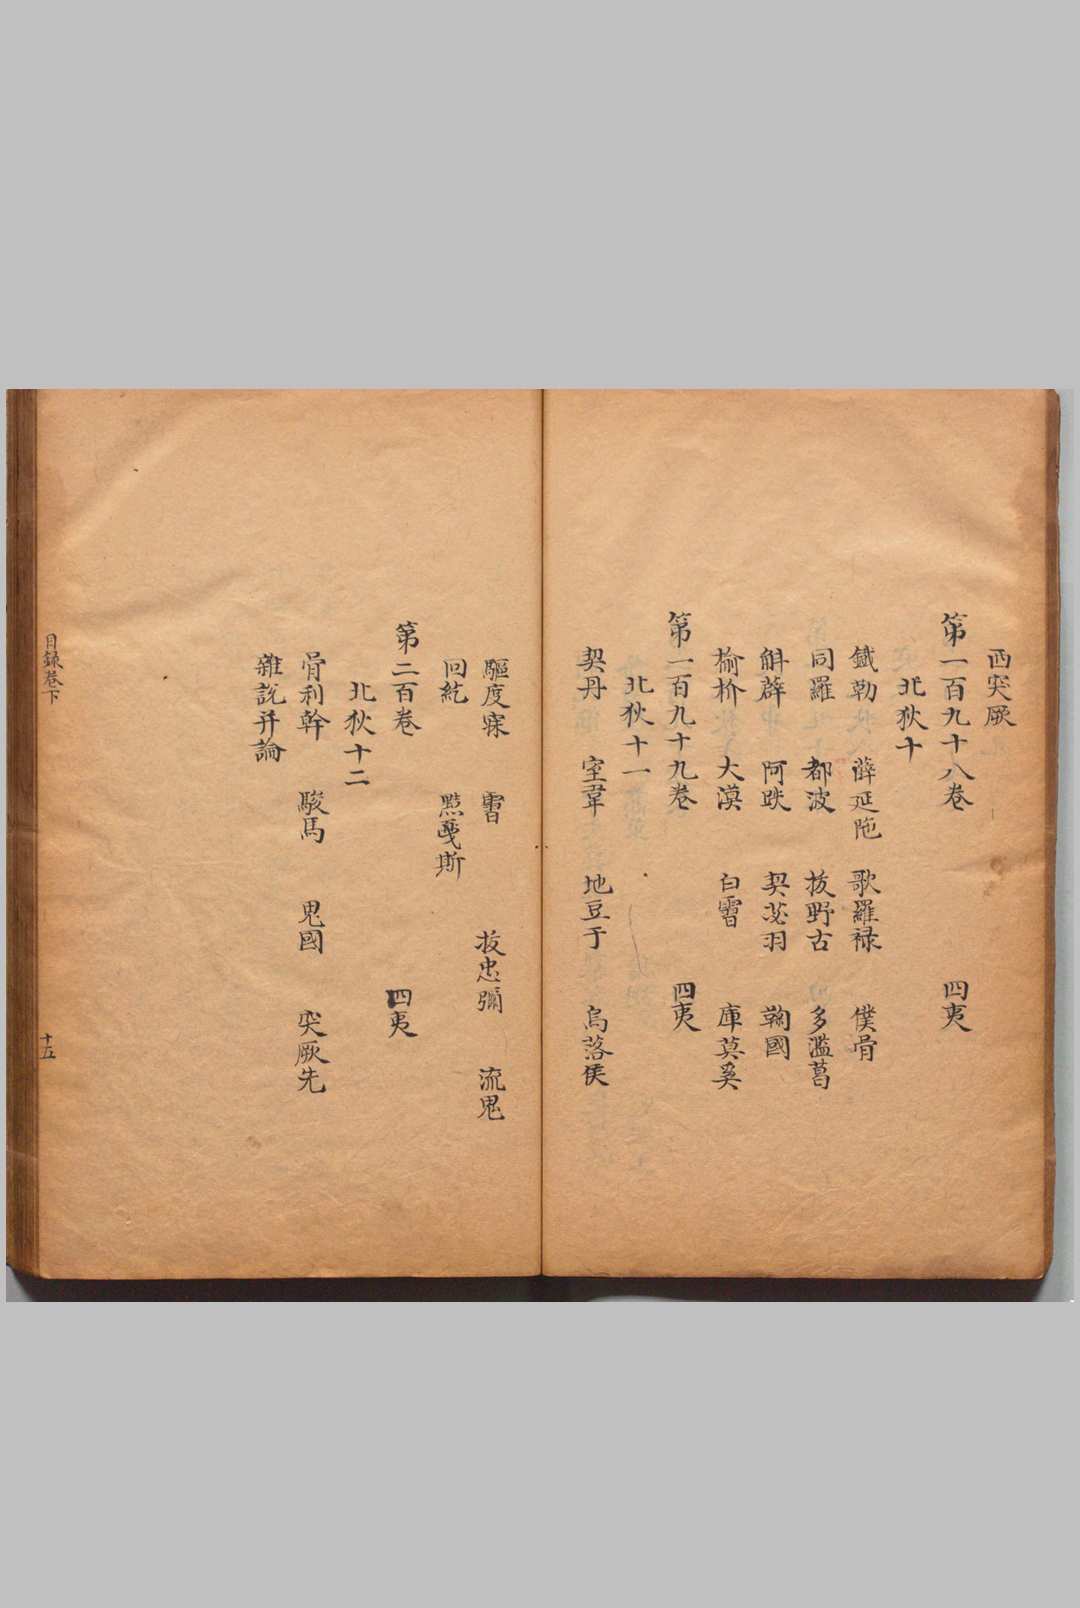 西突厥
第一百九十八卷 四夷
北狄十
鐵勒 薛延陁 歌羅禄 僕骨
同羅 都波 拔野古 多濫葛
斛薜 阿跌 契苾羽 鞠國
榆枌 大漠 白霫 庫莫奚
第一百九十九卷 四夷
北狄十一
契丹 室韋 地豆于 烏落侯
驅度寐 霫 拔悉彌 流鬼
回紇 黠戛斯
第二百卷 四夷
北狄十二
骨利幹 駮馬 鬼國 突厥先
雜説并論
目録卷下 十五